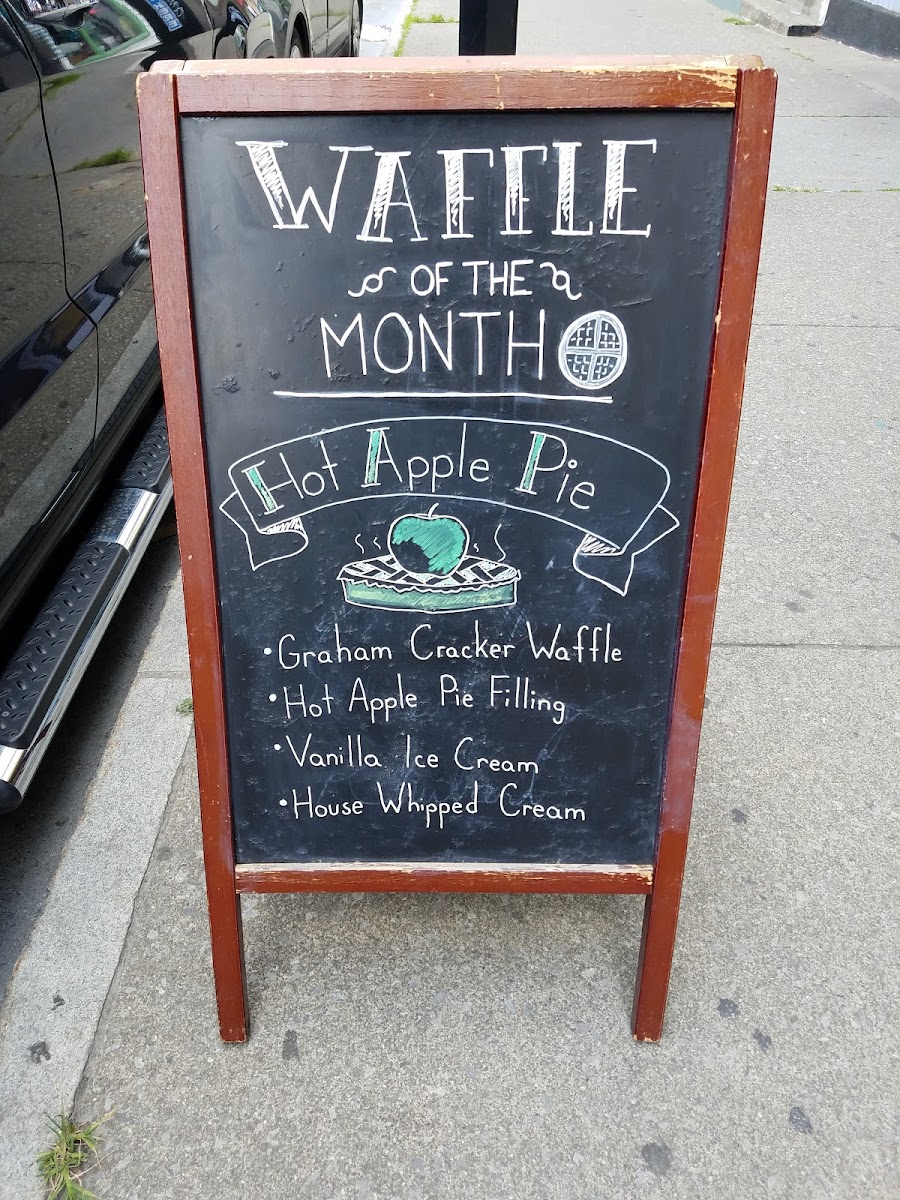 WAFFLE
OF THE
MONTH
Hot Apple Pie
•Graham Cracker Waffle
•Hot Apple Pie Filling
•Vanilla Ice Cream
•House Whipped Cream